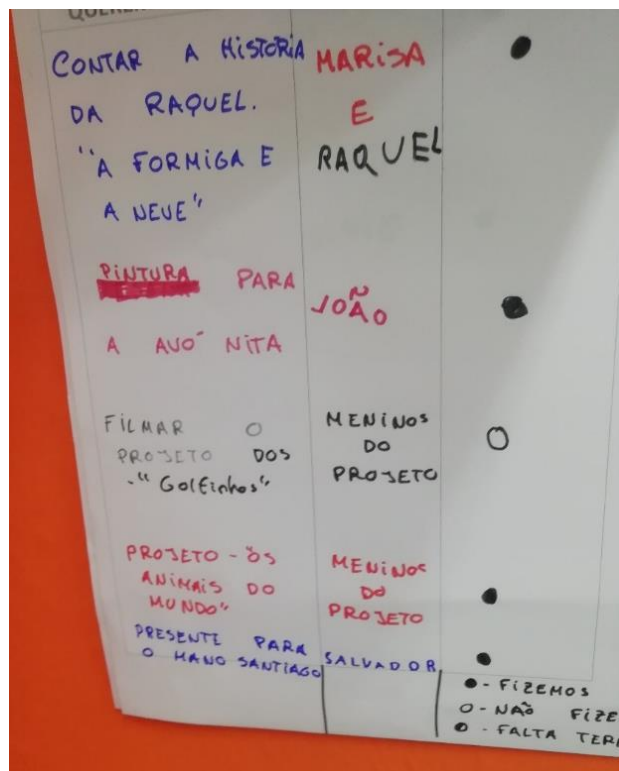 CONTAR A HISTORIA
DA RAQUEL.
"A FORMIGA E
A NEVE"
MARISA
E
RAQUEL
PINTURA PARA
A AVÓ NITA
JOÃO
FILMAR O
PROJETO DOS
"Golfinhos"
MENINOS
DO
PROJETO
PROJETO - "OS
ANIMAIS DO
MUNDO"
MENINOS
DO
PROJETO
PRESENTE PARA
O MANO SANTIAGO
SALVADOR
- FIZEMOS
- NÃO
- FALTA